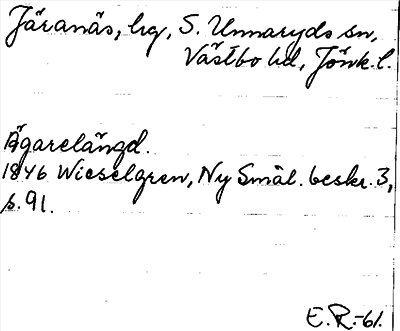 Järanäs, hg, S. Unnaryds sn,
Västbo hd, Jönk. l.
Ägarelängd.
1846 Wieselgren, Ny Smål. beskr. 3,
s. 91.
E.R.-61.